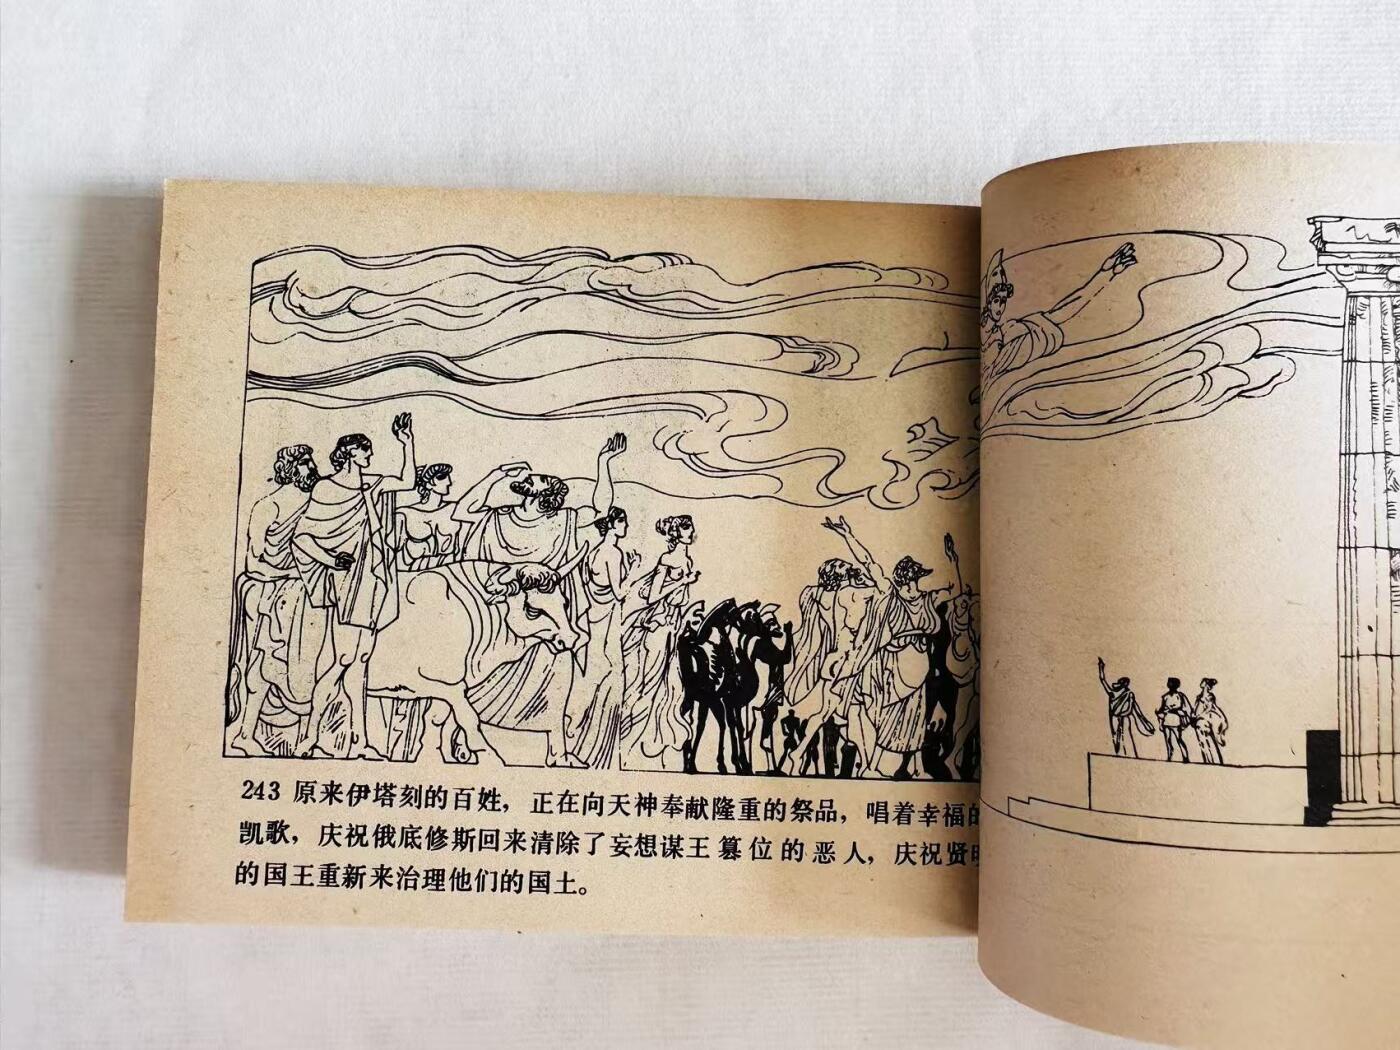 243 原来伊塔刻的百姓，正在向天神奉献隆重的祭品，唱着幸福的
凯歌，庆祝俄底修斯回来清除了妄想谋王篡位的恶人，庆祝贤明
的国王重新来治理他们的国土。